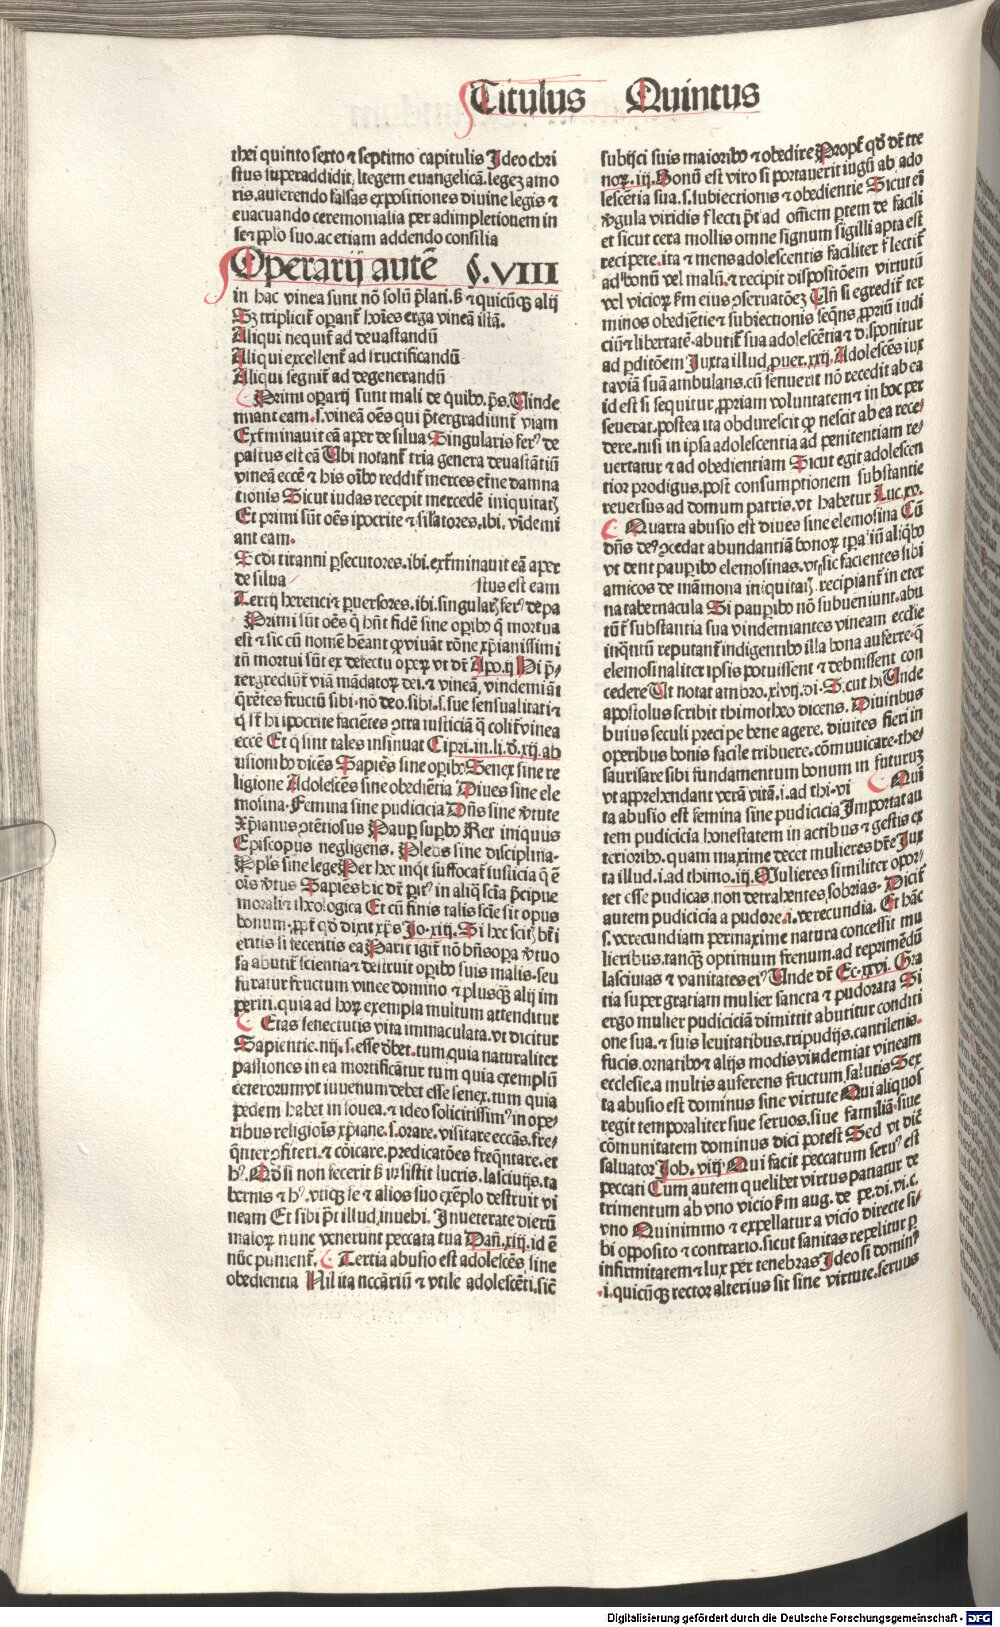 Titulus Quintus
thei quinto sexto ⁊ septimo capitulis Ideo chri
stus superaddidit, legem euangelicā. legeꝫ amo
ris. auferendo falsas expositiones diuine legis ⁊
euacuando ceremonialia per adimpletionem in
se ⁊ pp̄lo suo. ac etiam addendo consilia
Operarij autē §. VIII
in hac vinea sunt nō solū p̄lati. sꝫ ⁊ quicūqꝫ alij
Sꝫ triplicit̄ oꝑant̄ hoīes erga vineā illā.
Aliqui nequit̄ ad deuastandū
Aliqui excellent̄ ad fructificandū
Aliqui segnit̄ ad degenerandū
Primi oꝑarij sunt mali de quibꝰ. ps̄. Uinde
miant eam. s. vineā oēs qui p̄tergrediunt̄ viam
Exƭminauit eā aper de silua Singularis ferꝰ de
pastus est eā Ubi notant̄ tria genera deuastātiū
vineā eccē ⁊ his oībꝰ reddit̄ merces et̄ne damna
tionis Sicut iudas recepit mercedē iniquitatꝭ
Et primi sūt oēs ipocrite ⁊ sil̄atores. ibi. vīdemi
ant eam.
Scdi tiranni ꝑsecutores. ibi. exƭminauit eā aper
de silua stus est eam
Tertij heretici ⁊ ꝑuersores. ibi. singularꝭ ferꝰ depa
Primi sūt oēs q̄ hn̄t fidē sine oꝑibꝰ q̄ mortua
est ⁊ sic cū nomē hēant ꝙ viuāt rōne xp̄ianissimi
tn̄ mortui sūt ex defectu operꝝ vt dr̄ Apo. ij Hi p̄
tergrediūt̄ viā mādatorꝝ dei. ⁊ vineā, vindemiāt
q̄rētes fructū sibi. nō deo. sibi. s. sue sensualitati ⁊
q̄ sūt hi ipocrite faciētes ꝯtra iusticiā q̄ colit̄ vinea
eccē Et q̄ sint tales insinuat Cipri. in. li. d̄. xij. ab
usionibꝰ dicēs Sapiēs sine oꝑibꝰ Senex sine re
ligione Adolescēs sine obediētia Diues sine ele
mosina. Femina sine pudicicia Dn̄s sine v̓tute
Xp̄ianus ꝯtētiosus Pauꝑ suꝑbꝰ Rex iniquus
Episcopus negligens. Plebs sine disciplina.
Pp̄ls sine lege Per hec inq̄t suffocat̄ iusticia q̄ ē
oīs v̓tus Sapiēs hic dr̄ pitꝰ in aliq̄ scīa p̄cipue
morali ⁊ theologica Et cū finis talis scīe sit opus
bonum. ꝓpt̄ qd̄ dixit xp̄s Jo. xiij. Si hec scitꝭ bt̄i
eritis si feceritis ea Parit̄ igit̄ nō bn̄s oꝑa v̓tuo
sa abutit̄ scientia ⁊ destruit oꝑibꝰ suis malis. seu
furatur fructum vinee domino ⁊ plusqꝫ alij im
periti. quia ad horꝝ exempla multum attenditur
Etas senectutis vita immaculata. vt dicitur
Sapientie. iiij. s. esse dꝫbet. tum quia naturaliter
passiones in ea mortificātur tum quia exemplū
ceterorum vt iuuenum debet esse senex. tum quia
pedem habet in fouea. ⁊ ideo solicitissimꝰ in ope
ribus religiōis xp̄iane. s. orare. visitare eccās. fre
q̄nter ꝯfiteri. ⁊ cōicare. predicatōes freq̄ntare. et
hꝰ. Qd̄ si non fecerit sꝫ insistit lucris. lasciuijs. ta
bernis ⁊ hꝰ. vtiqꝫ se ⁊ alios suo exēplo destruit vi
neam Et sibi p̄t illud, inuehi. Inueterate dierū
malorꝝ nunc venerunt peccata tua Dañ. xiij. id ē
nūc punient̄. Tertia abusio est adolescēs sine
obedientia Nil ita nccāriū ⁊ vtile adolescēti. sicē
subijci suis maioribꝰ ⁊ obedire Propt̄ qd̄ dr̄ tre
norꝝ. iij. Bonū est viro si portauerit iugū ab ado
lescētia sua. s. subiectionis ⁊ obedientie Sicut eī
v̓gula viridis flecti p̄t ad oēm ꝑtem de facili
et sicut cera mollis omne signum sigilli apta est
recipere. ita ⁊ mens adolescentis faciliter flectit̄
ad bonū vel malū. ⁊ recipit dispositōem virtutū
vel viciorꝝ ẜm eius ꝯseruatōeꝫ Un̄ si egredit̄ ter
minos obediētie ⁊ subiectionis seq̄ns, ꝓpriū iudi
ciū ⁊ libertatē. abutit̄ sua adolescētia ⁊ disponitur
ad ꝑditōem Juxta illud, ꝓuer. xxij. Adolescēs iux
ta viā suā ambulans. cū senuerit nō recedit ab ea
id est si sequitur, ꝓpriam voluntatem ⁊ in hoc per
seuerat. postea ita obdurescit ꝙ nescit ab ea rece
dere. nisi in ipsa adolescentia ad penitentiam re
uertatur ⁊ ad obedientiam Sicut egit adolescen
tior prodigus. post consumptionem substantie
reuersus ad domum patris. vt habetur Luc. xv.
Quarta abusio est diues sine elemosina Cū
dn̄s deꝰ ꝯcedat abundantiā bonorꝝ tꝑaliū aliqbꝰ
vt dent pauꝑibꝰ elemosinas. vt sic facientes sibi
amicos de māmona iniquitatꝭ. recipiant̄ in eter
na tabernacula Si pauꝑibꝰ nō subueniunt. abu
tūt̄ substantia sua vindemiantes vineam ecclīe
inq̄ntū reputant̄ indigentibꝰ illa bona auferre. q̄
elemosinaliter ipsis potuissent ⁊ debuissent con
cedere Ut notat ambro. xlvij. di. Sicut hi Unde
apostolus scribit thimotheo dicens. Diuitibus
huius seculi precipe bene agere. diuites fieri in
operibus bonis facile tribuere. cōmunicare. the
saurisare sibi fundamentum bonum in futuruꝫ
vt apprehendant verā vitā. i. ad thi. vi Quin
ta abusio est femina sine pudicicia Importat au
tem pudicicia honestatem in actibus ⁊ gestis ex
terioribꝰ. quam maxime decet mulieres hr̄e Jux
ta illud. i. ad thimo. iij. Mulieres similiter opor
tet esse pudicas. non detrahentes, sobrias. Dicit̄
autem pudicicia a pudore. i. verecundia. Et hāc
s. verecundiam permaxime natura concessit mu
lieribus. tanqꝫ optimum frenum. ad reprimēdū
lasciuias ⁊ vanitates eiꝰ Unde dr̄ Ec. xxvi. Gra
tia super gratiam mulier sancta ⁊ pudorata Si
ergo mulier pudiciciā dimittit abutitur conditi
one sua. ⁊ suis leuitatibus. tripudijs. cantilenis.
fucis. ornatibꝰ ⁊ alijs modis vindemiat vineam
ecclesie. a multis auferens fructum salutis Sex
ta abusio est dominus sine virtute Qui aliquos
regit temporaliter siue seruos. siue familiā. siue
cōmunitatem dominus dici potest Sed vt dic̄
saluator Joh. viij. Qui facit peccatum seruꝰ est
peccati Cum autem quelibet virtus patiatur de
trimentum ab vno vicio ẜm aug. de pe. di. vi. c.
vno Quinimmo ⁊ expellatur a vicio directe si
bi opposito ⁊ contrario. sicut sanitas repelitur ꝑ
infirmitatem ⁊ lux per tenebras Ideo si dominꝰ
. i. quicūqꝫ rector alterius sit sine virtute. seruus
Digitalisierung gefördert durch die Deutsche Forschungsgemeinschaft - DFG